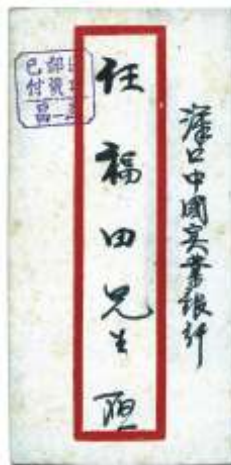 漢口中國實業銀行
任福田先生
郵資
已付